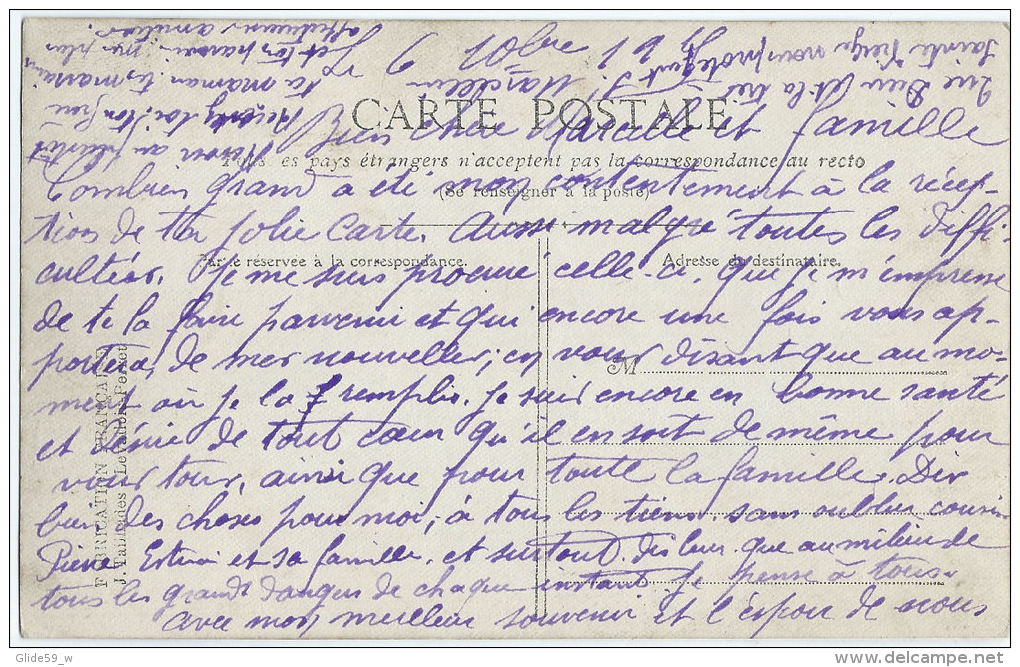 Le 6 10bre 19
CARTE POSTALE
Bien chère Marcelle et famille
Tous les pays étrangers n'acceptent pas la correspondance au recto
(Se renseigner à la poste)
Combien grand a été mon contentement à la récep-
tion de ta jolie Carte. Aussi malgré toutes les diffi-
cultés. Je me suis procuré celle-ci que je m'empresse
Partie réservée à la correspondance.
Adresse du destinataire.
de te la faire parvenir et qui encore une fois vous ap-
portera de mes nouvelles; en vous disant que au mo-
M
ment où je la remplis. je suis encore en bonne santé
et désire de tout cœur qu'il en soit de même pour
vous tous, ainsi que pour toute la famille. Dis
bien des choses pour moi, à tous les tiens sans oublier cousin
Pierre et sa famille. et surtout dis leur que au milieu de
tous les grands dangers de chaque instant je pense à tous.
avec mon meilleur souvenir et l'espoir de nous
revoir au plus tôt
Reçois, toi, ton
ta maman, ta marraine
et ton parrain mes plus
affectueuses amitiés.
Que Dieu et la très
Sainte Vierge nous protègent
Marcelin
FABRICATION FRANÇAISE